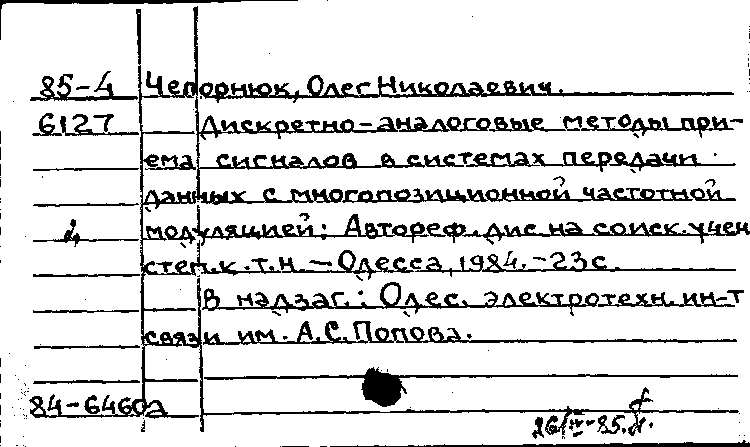 85-4 Чепорнюк, Олег Николаевич.
6127 Дискретно-аналоговые методы при-
ема сигналов в системах передачи
данных с многопозиционной частотной
модуляцией: Автореф. дис на соиск. учен
степ. к. т. н. — Одесса, 1984. - 23 с.
В надзаг.: Одес. электротехн. ин-т
связи им. А.С. Попова.
84-6460д